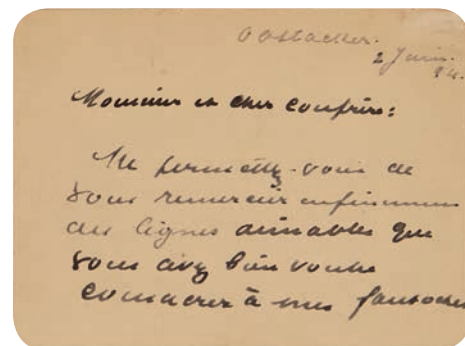 Oostacker.
2 Juin.
94.
Monsieur et cher confrère:
Me permettez-vous de
vous remercier infiniment
des lignes aimables que
vous avez bien voulu
consacrer à mes fantoches